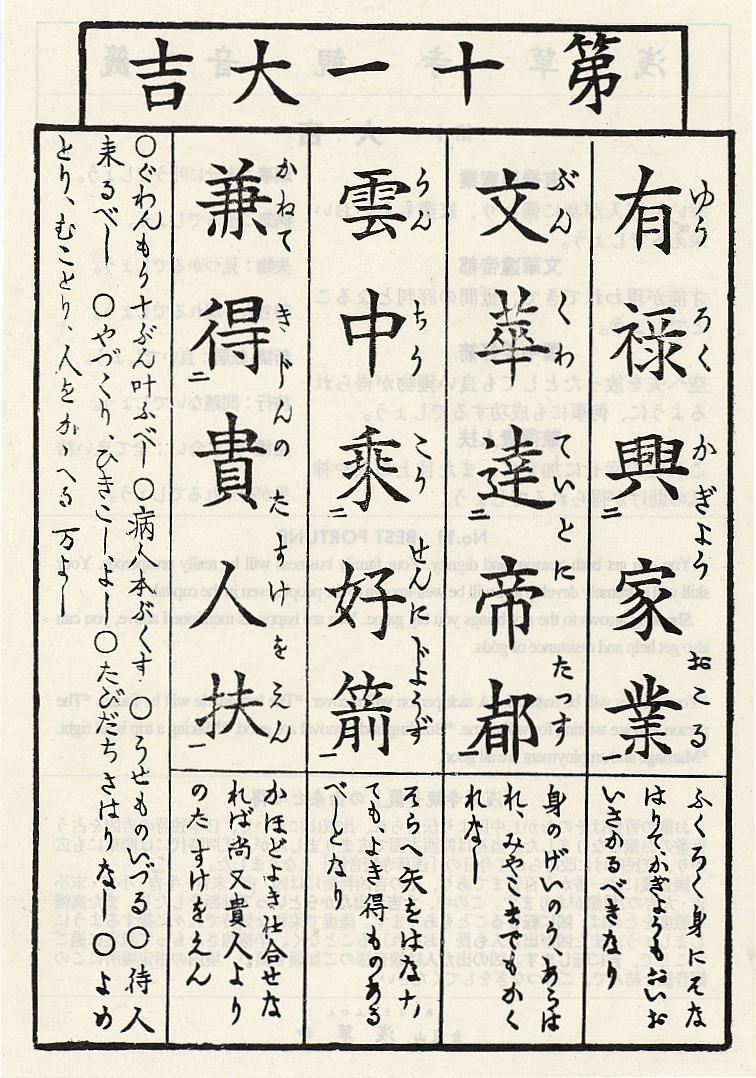 第十一大吉
有禄興二家業
ゆうろくかぎようおこる
文華達二帝都一
ぶんくわていとにたつす
雲中乗二好箭一
うんちうこうせんにじようず
兼得二貴人扶一
かねてきじんのたすけをえん
ふくろく身にそな
はりかぎうもおいお
いさかるべきなり
身のげいのうあらは
れ、みやこまでもかく
れなし
そらへ矢をはなし
てもよき得ものある
べし
かほどよき仕合せな
れば尚又貴人より
のたすけをうん
〇ぐわんもう十ぶん叶ふべし〇病人本ぶくす〇うせものいづる〇待人
来るべし 〇やづくりひきこしよし〇たびだちさはりなし〇よめ
とり、むことり、人をかゝへる万よし